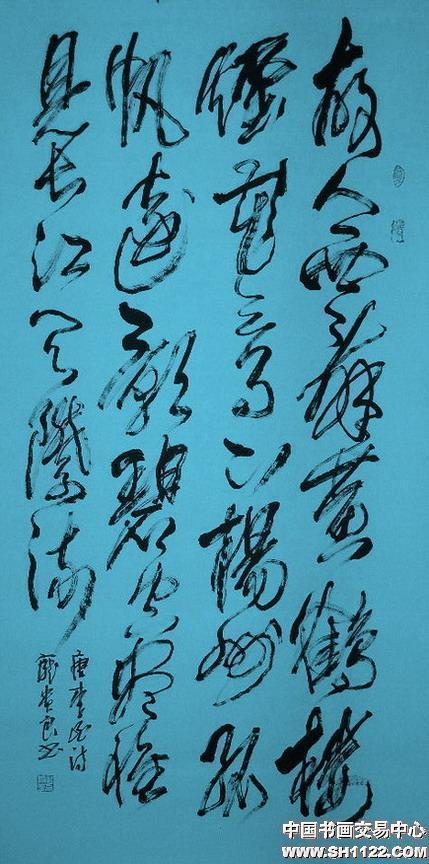 故人西辞黄鶴樓
煙花三月下揚州孤
帆遠影碧空盡惟
見长江天際流
唐李白诗
中国书画交易中心
www.SH1122.COM